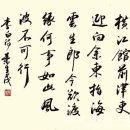 横江館前津吏
迎向余東指海
雲生郎今欲渡
緣何事如此風
波不可行
李白詩